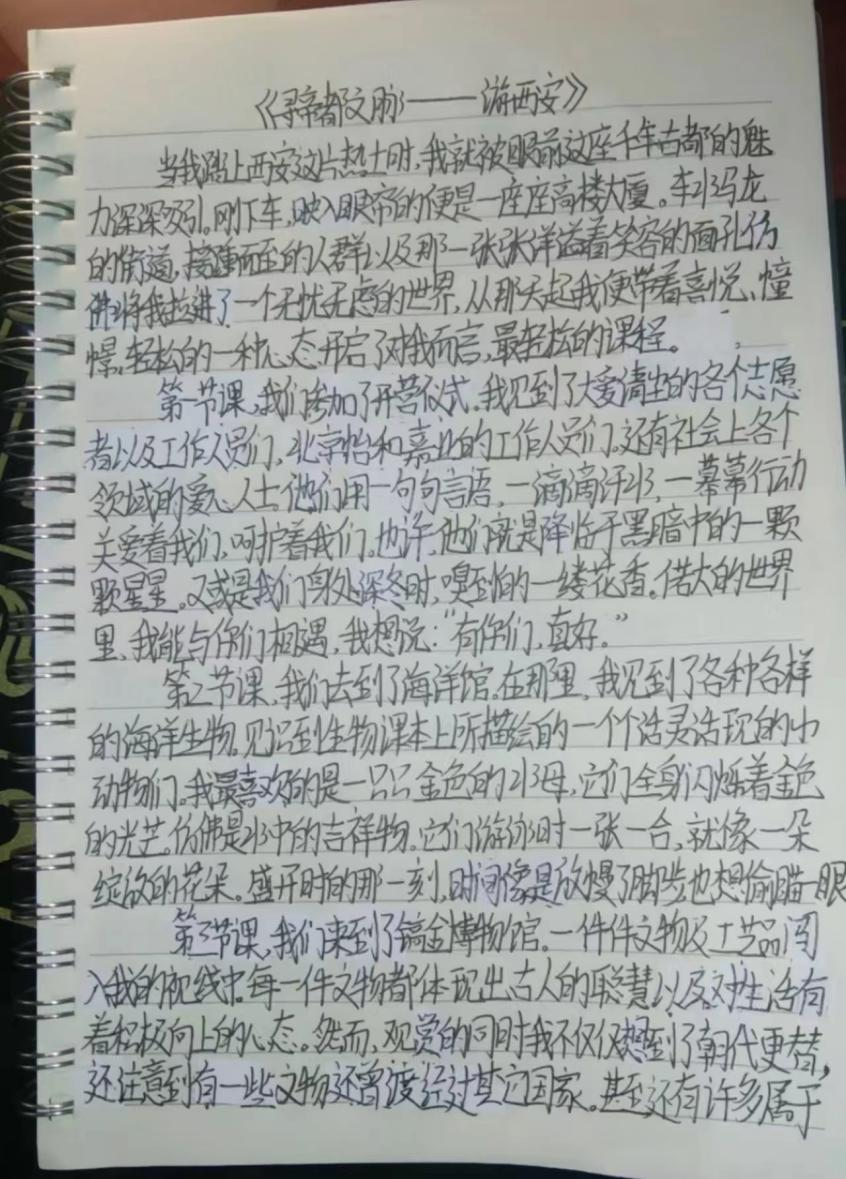 《寻帝都文脉——游西安》
当我踏上西安这片热土时,我就被眼前这座千年古都的魅
力深深吸引。刚下车,映入眼帘的便是一座座高楼大厦。车水马龙
的街道,接踵而至的人群以及那一张张洋溢着笑容的面孔仿
佛将我拉进了一个无忧无虑的世界,从那天起我便带着喜悦、憧
憬,轻松的一种心态开启了对我而言,最轻松的课程。
第一节课,我们参加了开营仪式。我见到了大爱清尘的各个志愿
者以及工作人员们,北京怡和嘉业的工作人员们。还有社会上各个
领域的爱心人士他们用一句句言语,一滴滴汗水,一幕幕行动
关爱着我们,呵护着我们。也许,他们就是降临于黑暗中的一颗
颗星星。又或是我们身处深冬时,嗅到的一缕花香。偌大的世界
里,我能与你们相遇,我想说:“有你们,真好。”
第二节课,我们去到了海洋馆。在那里,我见到了各种各样
的海洋生物。见识到生物课本上所描绘的一个个活灵活现的小
动物们。我最喜欢的是一只只金色的水母,它们全身闪烁着金色
的光芒。仿佛是水中的吉祥物。它们游泳时一张一合,就像一朵
绽放的花朵。盛开时的那一刻,时间像是放慢了脚步也想偷瞄一眼
第三节课,我们来到了镐金博物馆。一件件文物及工艺品闯
入我的视线中。每一件文物都体现出古人的聪慧以及对生活有
着积极向上的心态。然而,观赏的同时我不仅仅想到了朝代更替,
还注意到有一些文物还曾渡经过其它国家。甚至还有许多属于